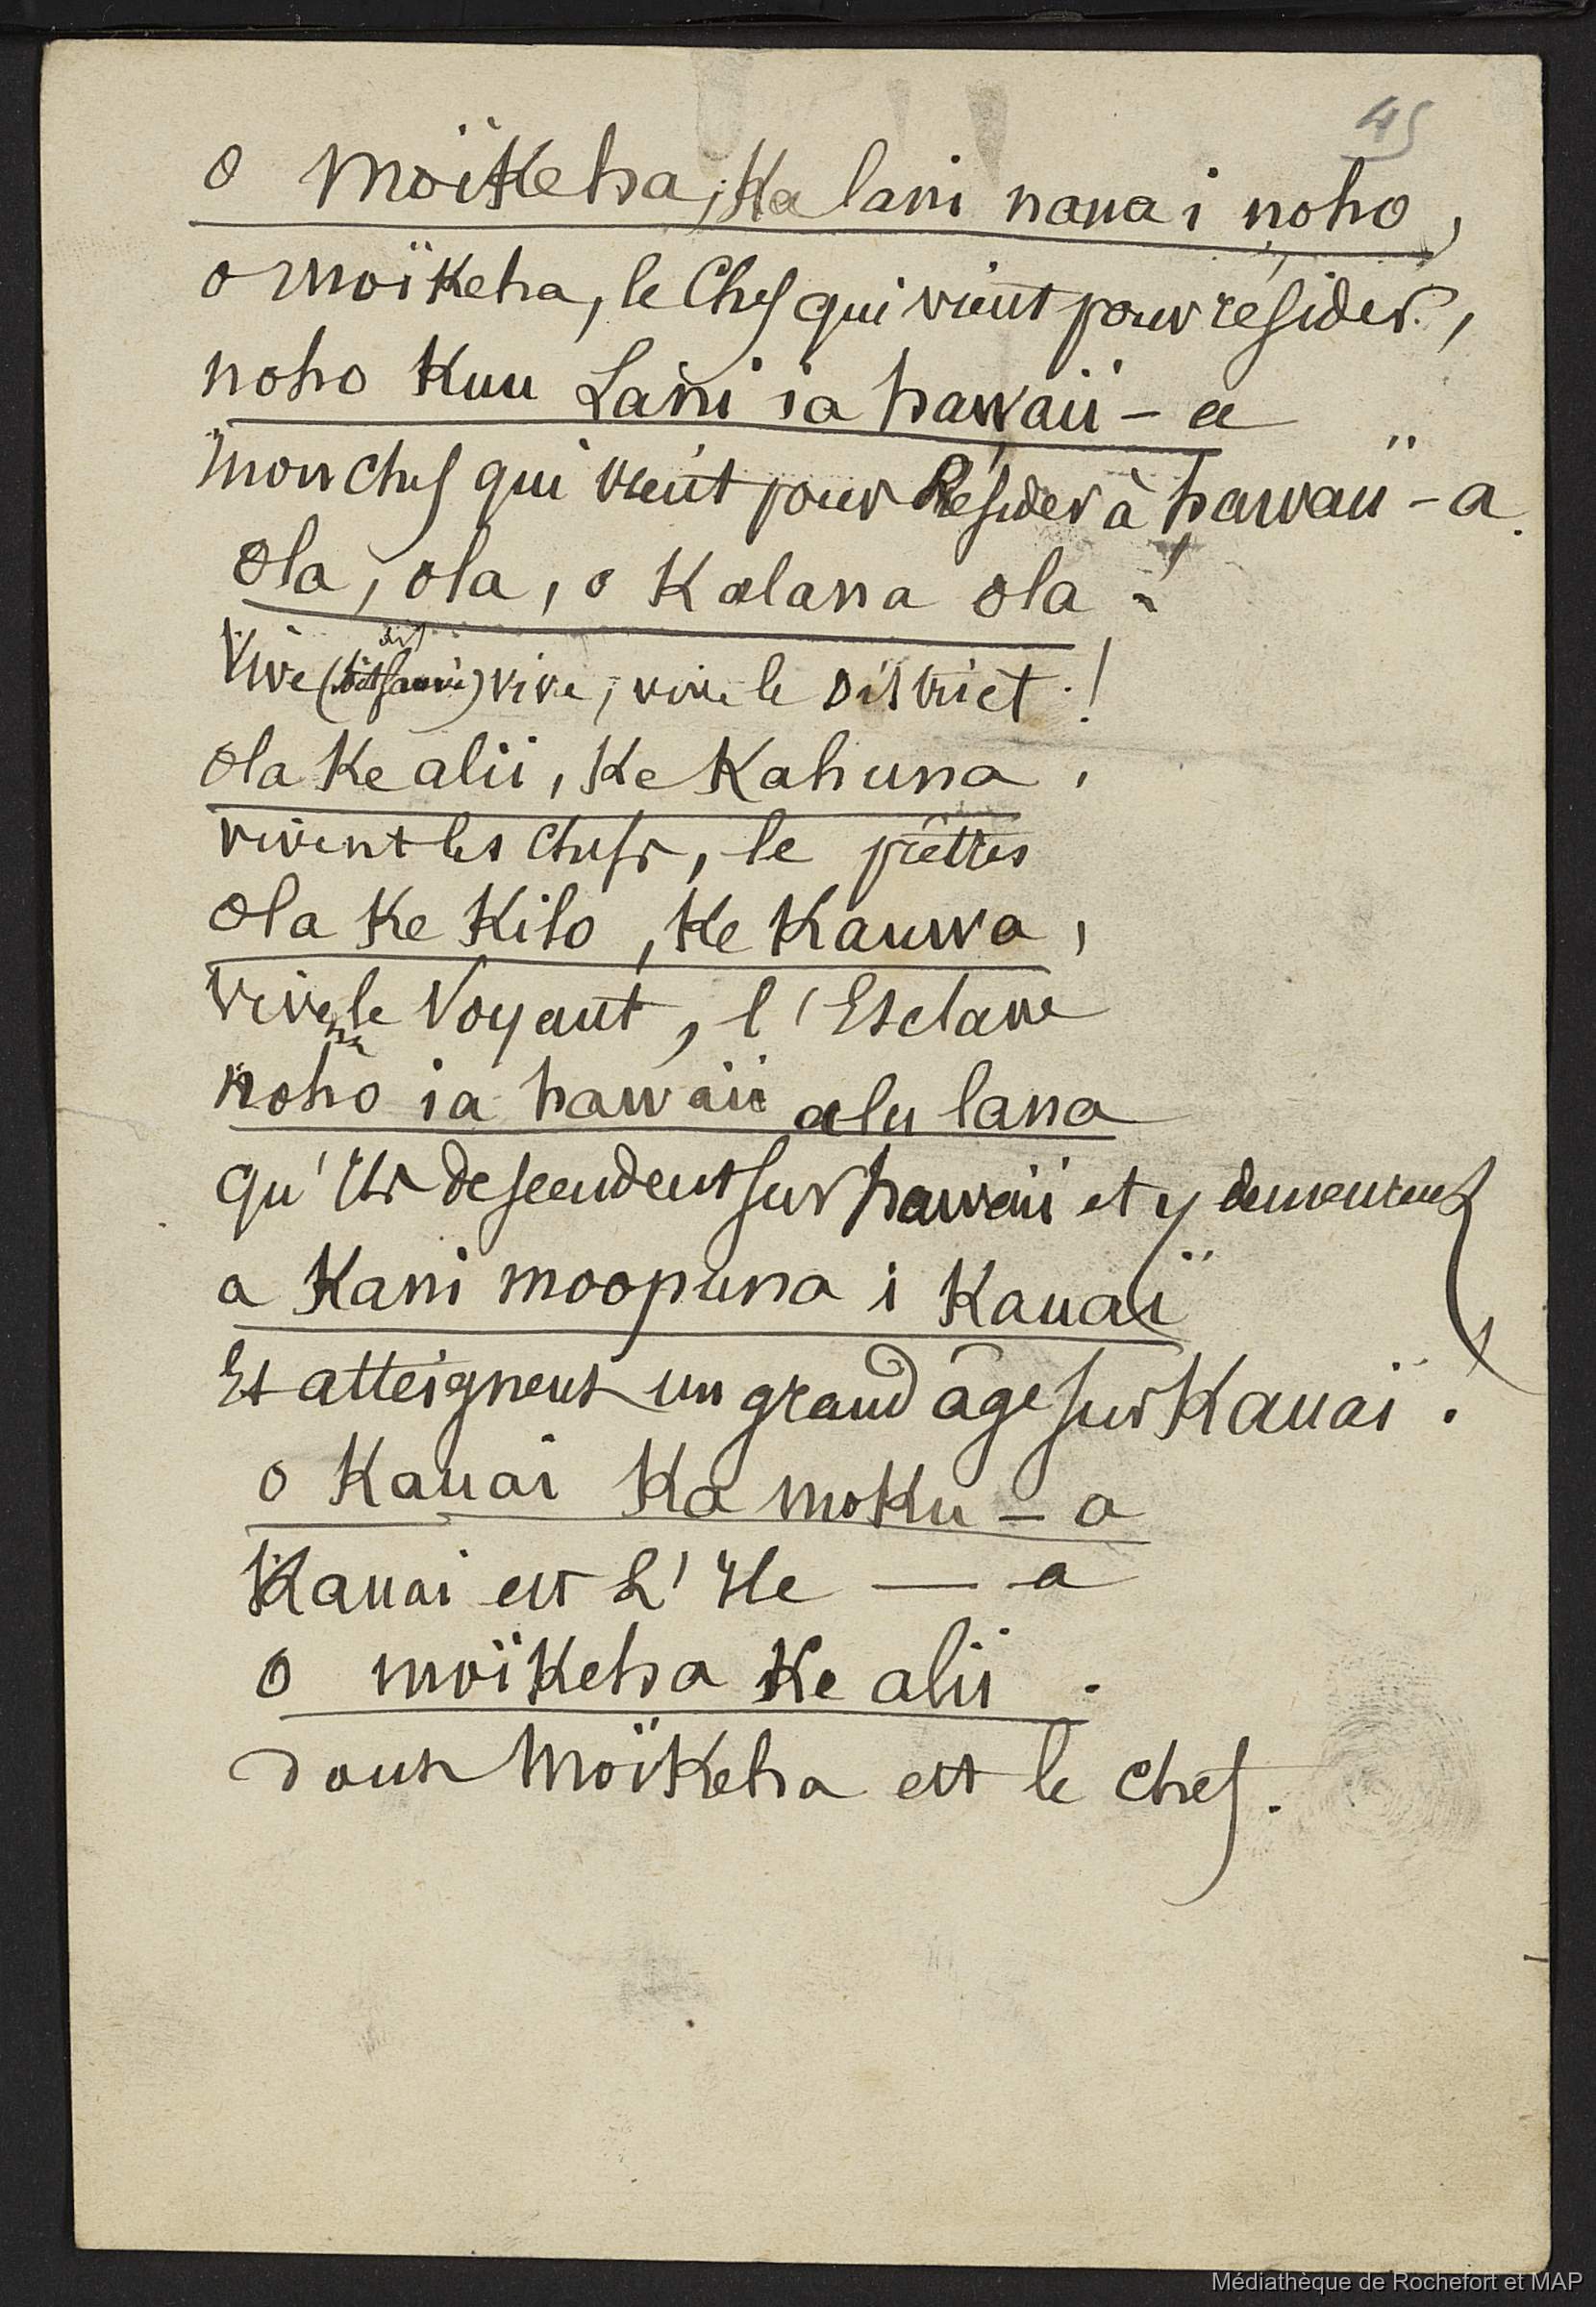 45
o Moïkeha, Ka lani nana i noho,
o Moïkeha, le Chef qui vient pour résider,
noho Kuu Lani ia hawaii - a
mon chef qui vient pour Résider à hawaii - a.
Ola, ola, o Kalana ola !
Vive (soit sauvé) vive, vive le District !
Ola Ke alii, Ke Kahuna,
vivent les chefs, le prêttes
Ola Ke Kilo, Ke Kauwa,
Vive le Voyant, l'Esclave
noho ia hawaii alu lana
qu'Ils descendent sur hawaii et y demeurent
a Kani moopuna i Kauaï
Et atteignent un grand âge sur Kauaï.
o Kauai Ka moKu - a
Kauai est L'Ile - a
o moïKeha Ke alii.
dont MoïKeha est le chef.
Médiathèque de Rochefort et MAP